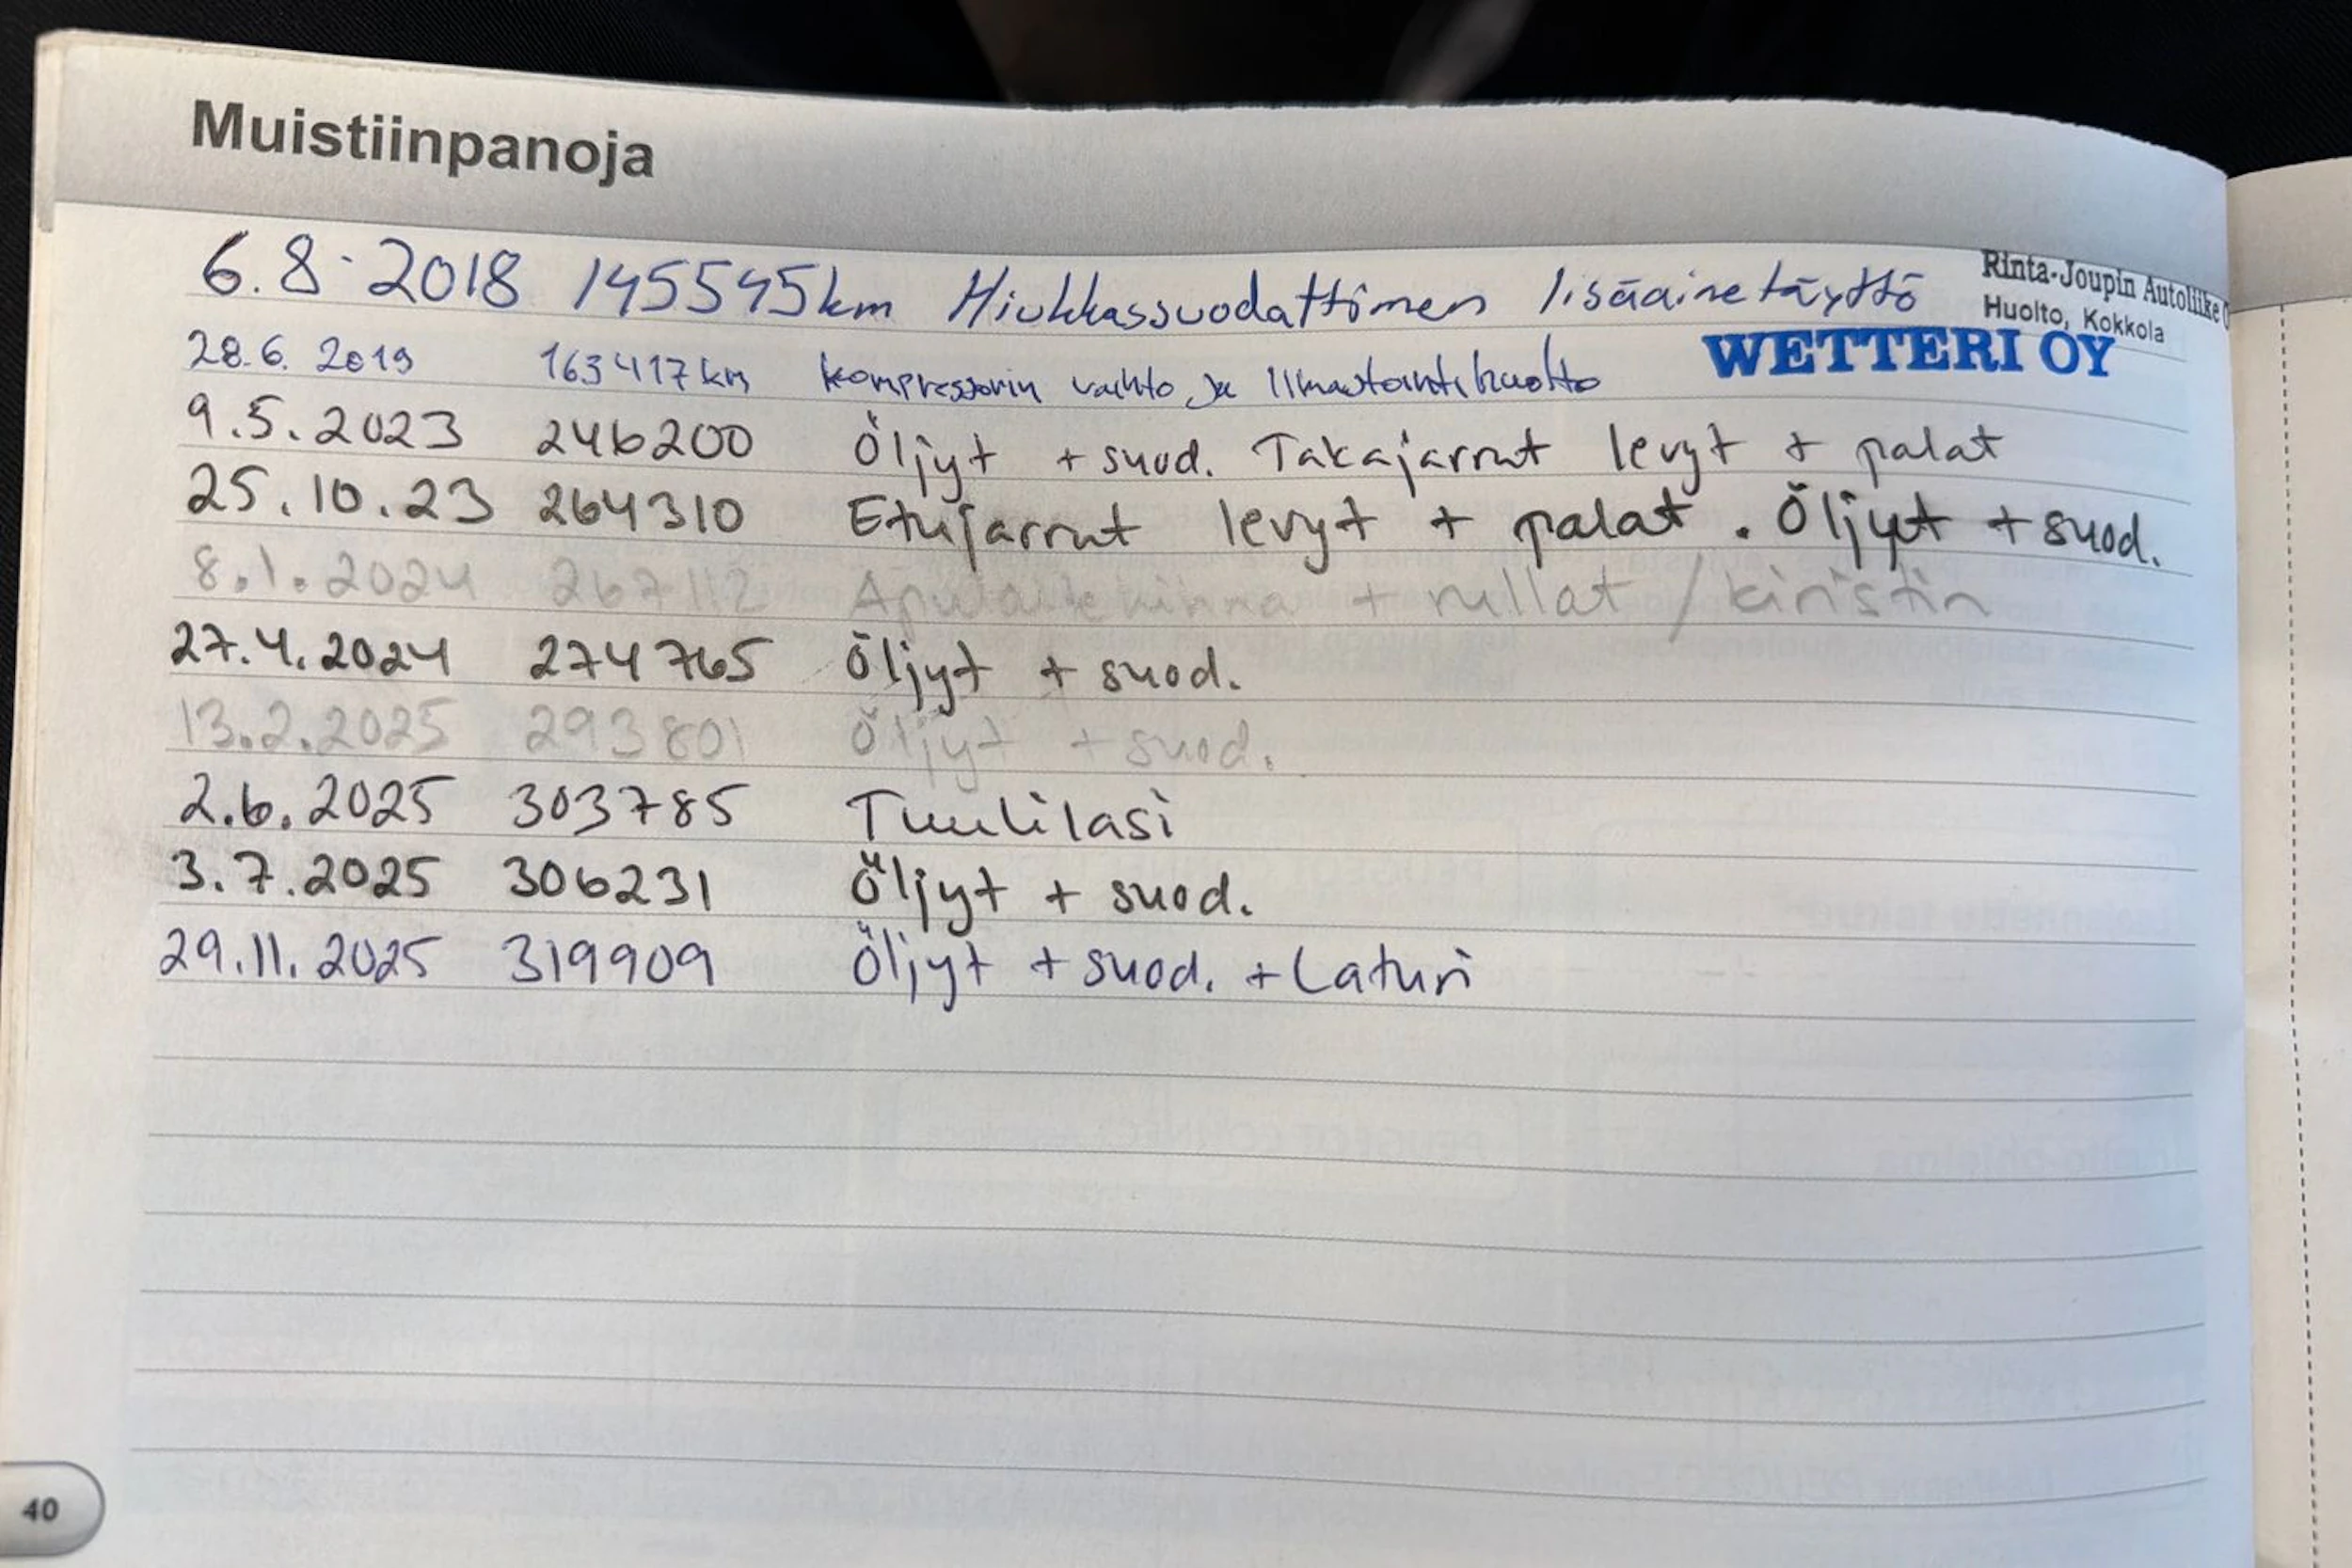 Muistiinpanoja
6.8.2018 145545km Hiukkassuodattimen lisäainetäyttö Rinta-Joupin Autoliike O
Huolto, Kokkola
28.6.2019 163417km kompressorin vaihto ja Ilmastointihuolto WETTERI OY
9.5.2023 246200 Öljyt + suod. Takajarrut levyt + palat
25.10.23 264310 Etujarrut levyt + palat. Öljyt + suod.
8.1.2024 267112 Apulaitehihna + rullat / kiristin
27.4.2024 274765 Öljyt + suod.
13.2.2025 293801 Öljyt + suod.
2.6.2025 303785 Tuulilasi
3.7.2025 306231 Öljyt + suod.
29.11.2025 319909 Öljyt + suod. + Laturi
40